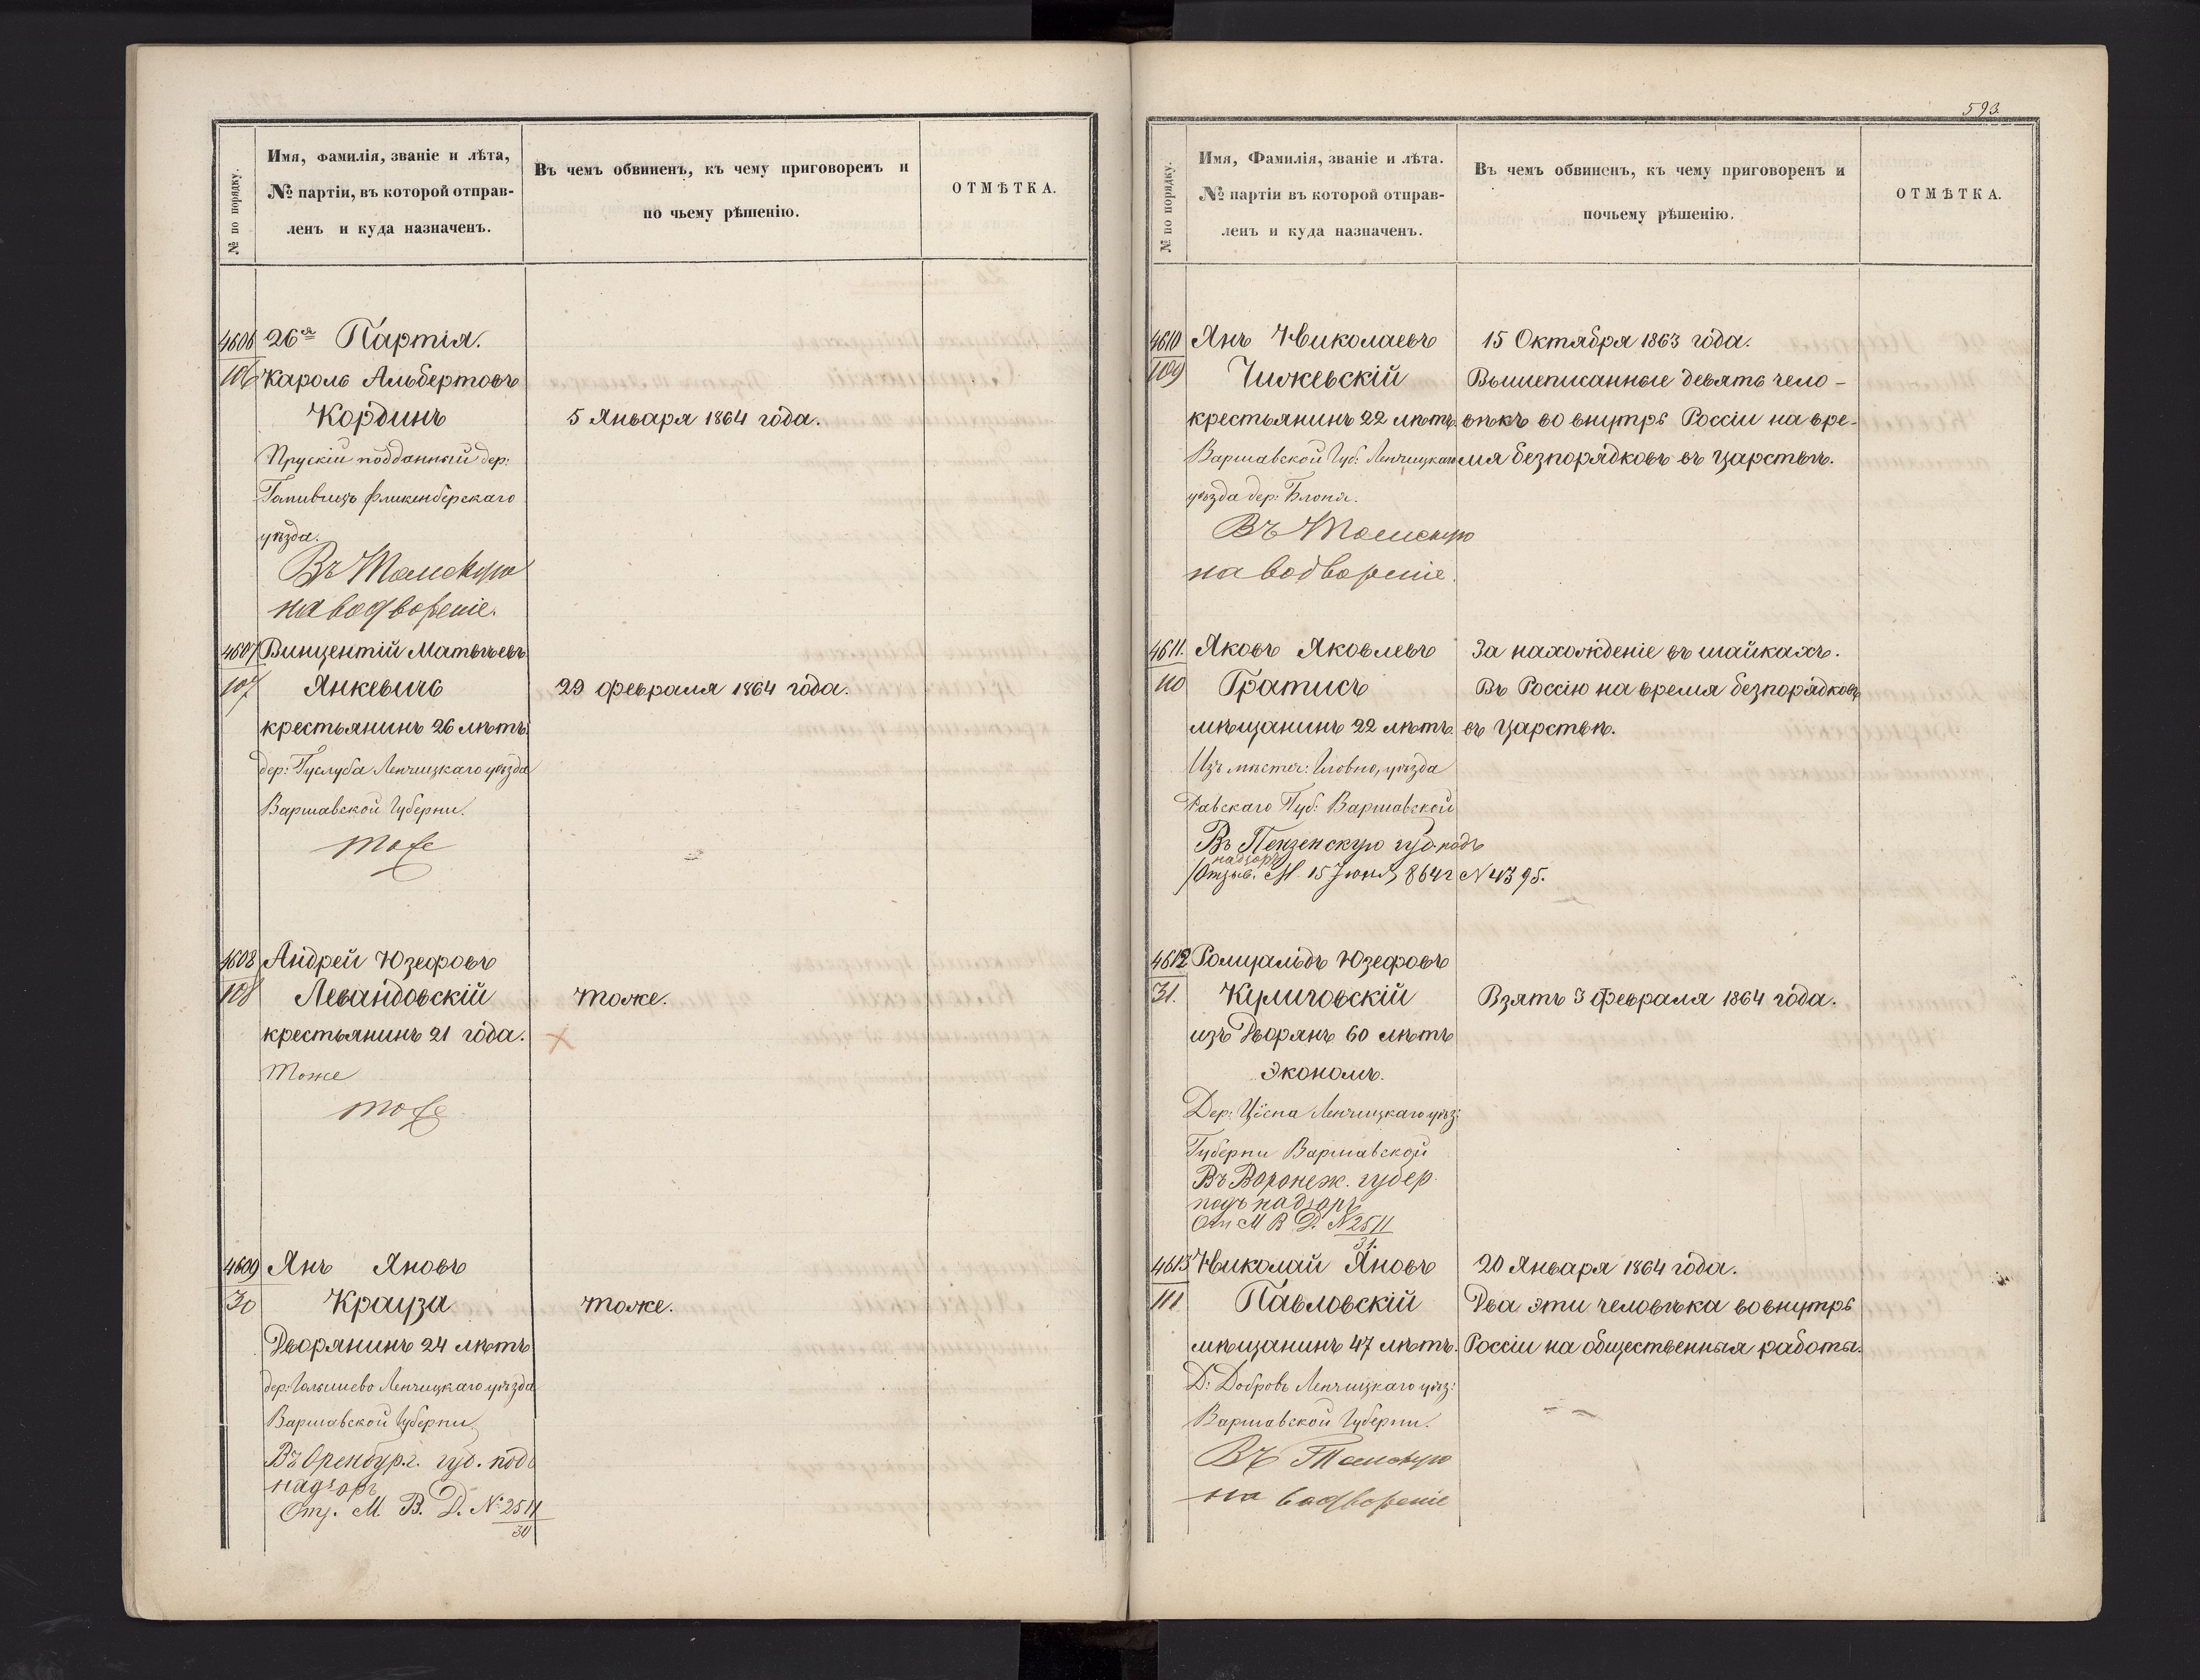 № по порядку.
Имя, фамилія, званіе и лѣта,
№ партіи, въ которой отправ-
ленъ и куда назначенъ.
Въ чемъ обвиненъ, къ чему приговоренъ и
по чьему рѣшенію.
ОТМѢТКА.
4606 26я Партія.
106 Кароль Альбертовъ
Кординъ
5 Января 1864 года.
Прускій подданный дер:
уѣзда.
Въ Томскую
на водвореніе.
4607 Винцентій Матвѣевъ
107 Янкевичъ
29 февраля 1864 года.
крестьянинъ 26 лѣтъ.
дер: Ленчицкаго уѣзда
Варшавской Губерніи.
тоже
4608 Андрей Юзефовъ
108 Левандовскій
тоже.
крестьянинъ 21 года.
Тоже
тоже
4609 Янъ Яновъ
30 Крауза
тоже.
Дворянинъ 24 лѣтъ
дер: Ленчицкаго уѣзда
Варшавской Губерніи.
Въ Оренбург. губ. подъ
надзоръ
Отз. М. В. Д. № 2511
30
593.
№ по порядку.
Имя, Фамилія, званіе и лѣта.
№ партіи въ которой отправ-
ленъ и куда назначенъ.
Въ чемъ обвиненъ, къ чему приговоренъ и
почьему рѣшенію.
ОТМѢТКА.
4610 Янъ Николаевъ
15 Октября 1863 года.
109 Чижевскій
Вышеписанные девять чело-
крестьянинъ 22 лѣтъ.
вѣкъ во внутрь Россіи на вре-
Варшавской Губ: Ленчицкаго
мя безпорядковъ въ царствѣ.
уѣзда дер: Блоня.
Въ Томскую
на водвореніе.
4611. Яковъ Яковлевъ
За нахожденіе въ шайкахъ.
110 Гратисъ
Въ Россію на время безпорядковъ
мѣщанинъ 22 лѣтъ.
въ Царствѣ.
Изъ мѣстеч: Гловно, уѣзда
Равскаго Губ: Варшавской
Въ Пензенскую губ. подъ
надзоръ
Отзыв. М. 15 Іюня 864 г № 4395.
4612 Ромуальдъ Юзефовъ
31. Кулиговскій
Взятъ 3 Февраля 1864 года.
изъ Дворянъ 60 лѣтъ
экономъ.
Дер: Ленчицкаго уѣз:
Губерніи Варшавской
Въ Воронеж. губер.
подъ надзоръ
Отз М В Д. № 2511
31.
4613 Николай Яновъ
20 Января 1864 года.
111 Павловскій
Два эти человѣка во внутрь
мѣщанинъ 47 лѣтъ.
Россіи на общественныя работы.
Д: Добровъ Ленчицкаго уѣз:
Варшавской Губерніи.
Въ Томскую
на водвореніе